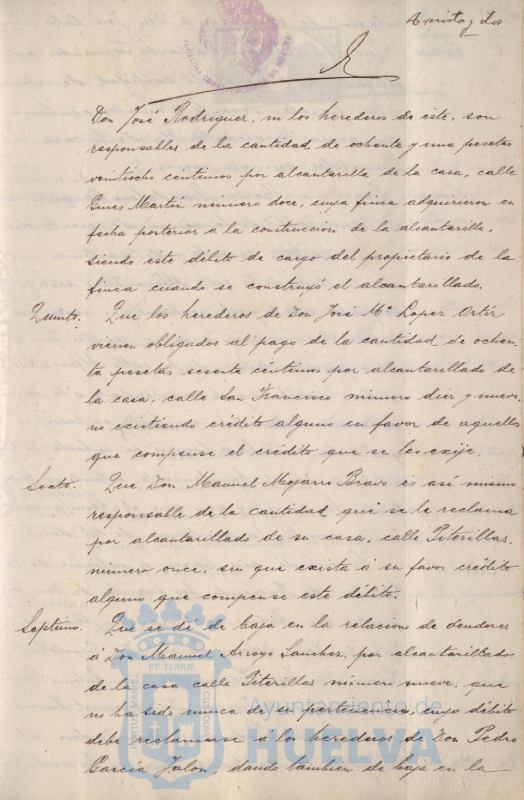 treinta y dos
Don José Rodriguez, ni los herederos de este, son
responsables de la cantidad de ochenta y una pesetas
ventiocho centimos por alcantarilla de la casa, calle
Ginés Martin número doce, cuya finca adquirieron en
fecha posterior á la construccion de la alcantarilla,
siendo este débito de cargo del propietario de la
finca cuando se construyó el alcantarillado.
Quinto. Que los herederos de Don José Mª Lopez Ortiz
vienen obligados al pago de la cantidad de ochen-
ta pesetas sesenta céntimos por alcantarillado de
la casa, calle San Francisco número diez y nueve,
no existiendo crédito alguno en favor de aquellos
que compense el crédito que se les exije.
Sexto. Que Don Manuel Mojarro Bravo es así mismo
responsable de la cantidad que se le reclama
por alcantarillado de su casa, calle Piterillas,
número once, sin que exista á su favor crédito
alguno que compense este débito.
Septimo. Que se dé de baja en la relacion de deudores
á Don Manuel Arroyo Sanchez, por alcantarillado
de la casa calle Piterillas número nueve, que
no ha sido nunca de su pertenencia, cuyo débito
debe reclamarse a los herederos de Don Pedro
Garcia Jalon, dando tambien de baja en la
ET TERRÆ
PORTUS MARIS
CUSTODIA
Ayuntamiento de
HUELVA